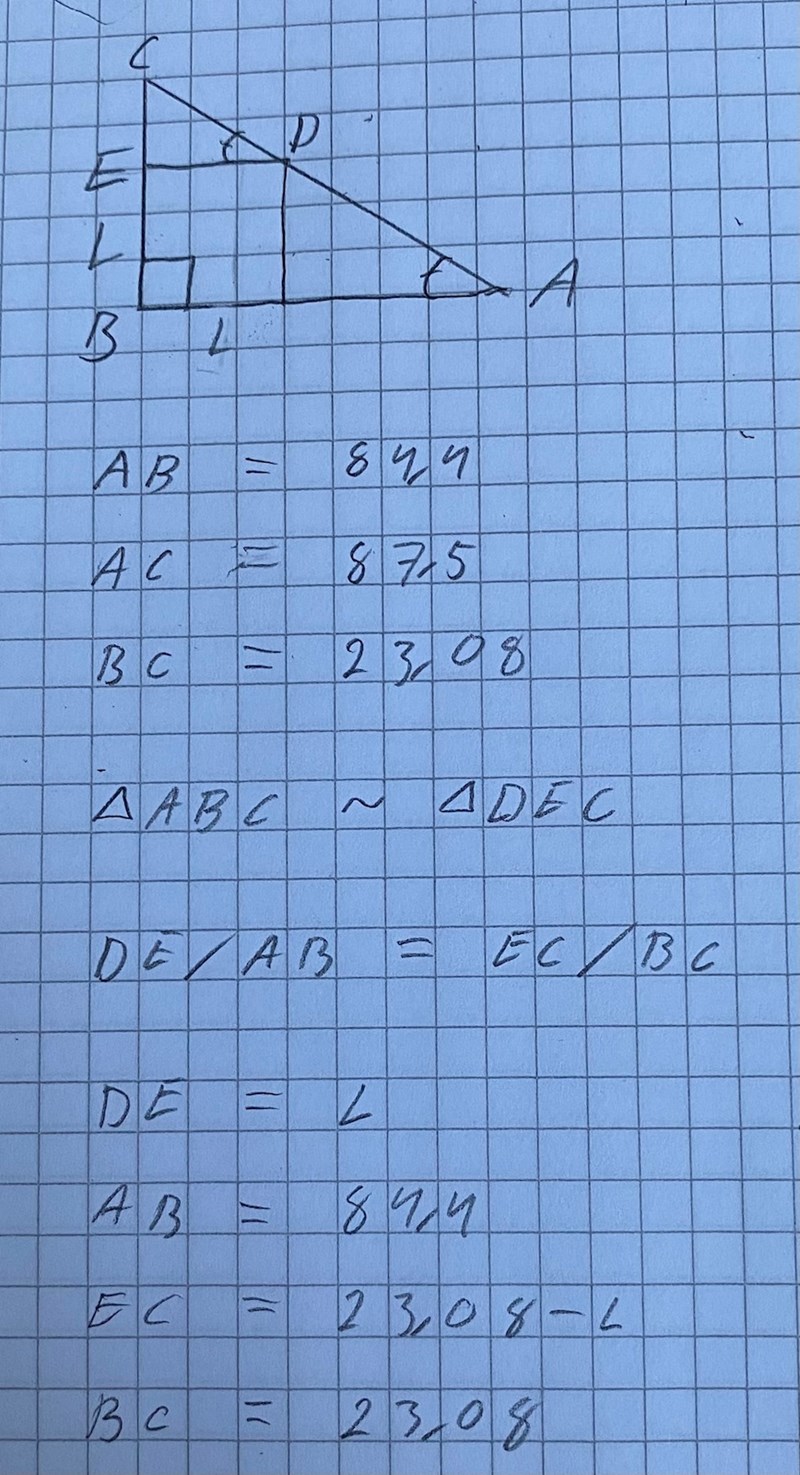 C
D
E
L
A
B L
AB = 84,4
AC = 87,5
BC = 23,08
△ABC ~ △DEC
DE/AB = EC/BC
DE = L
AB = 84,4
EC = 23,08-L
BC = 23,08